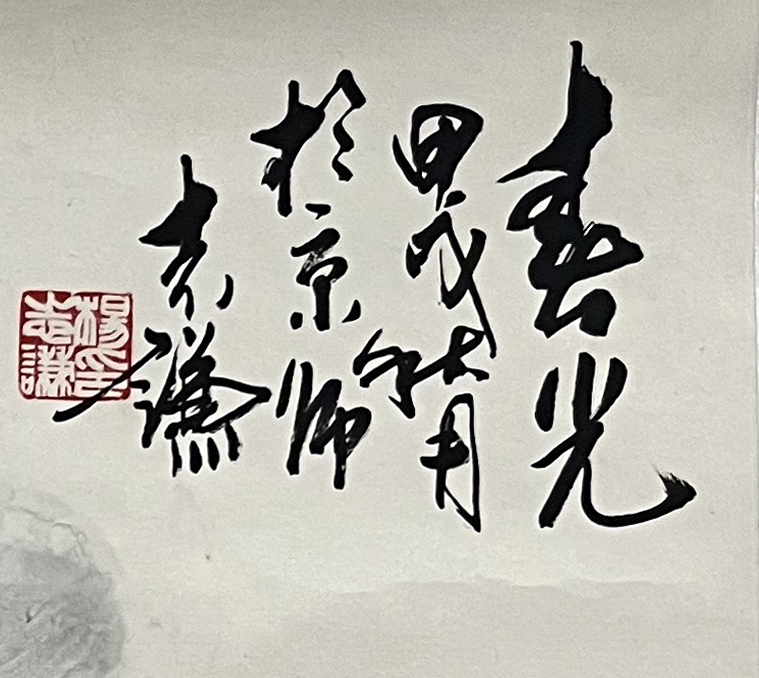 春光
甲戌秋月
於京师
志謙
楊印志謙